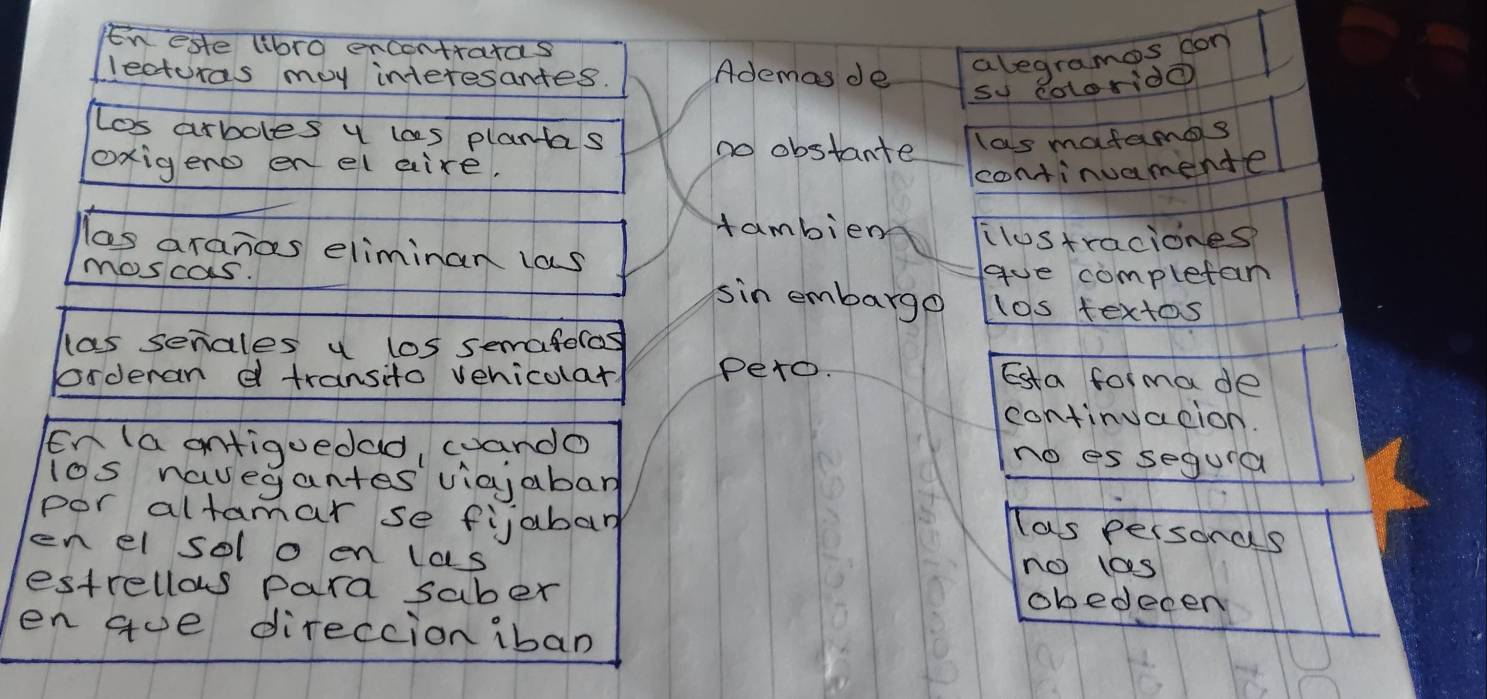 En este libro encontraras
lecturas muy interesantes.
Los arboles y las plantas
oxigeno en el aire.
las arañas eliminan las
moscas.
las señales y los semaforos
ordenan el transito vehicular
En la antiguedad, cuando
los navegantes viajaban
por altamar se fijaban
en el sol o en las
estrellas para saber
en que direccion iban
Ademas de
no obstante
tambien
sin embargo
pero.
alegramos con
su colorido
las matamos
continuamente
ilustraciones
que completan
los textos
Esta forma de
continuacion.
no es segura
las personas
no las
obedecen